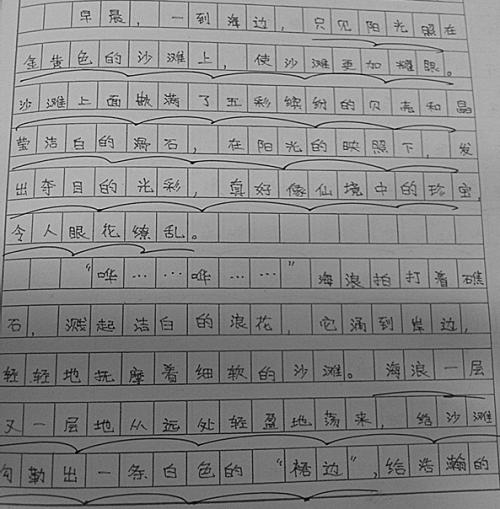 早晨，一到海边，只见阳光照在
金黄色的沙滩上，使沙滩更加耀眼。
沙滩上面嵌满了五彩缤纷的贝壳和晶
莹洁白的滑石，在阳光的映照下，发
出夺目的光彩，真好像仙境中的珍宝，
令人眼花缭乱。
“哗……哗……”海浪拍打着礁
石，溅起洁白的浪花，它涌到岸边，
轻轻地抚摩着细软的沙滩。海浪一层
又一层地从远处轻盈地荡来，给沙滩
勾勒出一条白色的“裙边”，给浩瀚的